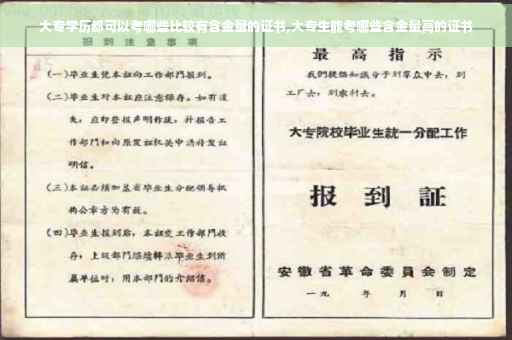 大专学历都可以考哪些比较有含金量的证书,大专生能考哪些含金量高的证书
报到注意事项
(一)毕业生凭本证向工作部门报到。
(二)毕业生对本证应注意保存。如有遗
失,应即登报声明作废,并报告工
作部门和向原发证机关申请补发证
明信。
(三)本证必须加盖省毕业生分配领导机
构公章方为有效。
(四)毕业生报到后,本证交工作部门收
存;上级部门继续转派毕业生到所
属单位时,用本部门的介绍信。
最高指示
我们提倡知识分子到群众中去,到
工厂去,到农村去。
大专院校毕业生统一分配工作
报到证
安徽省革命委员会制定
一九 年 月 日